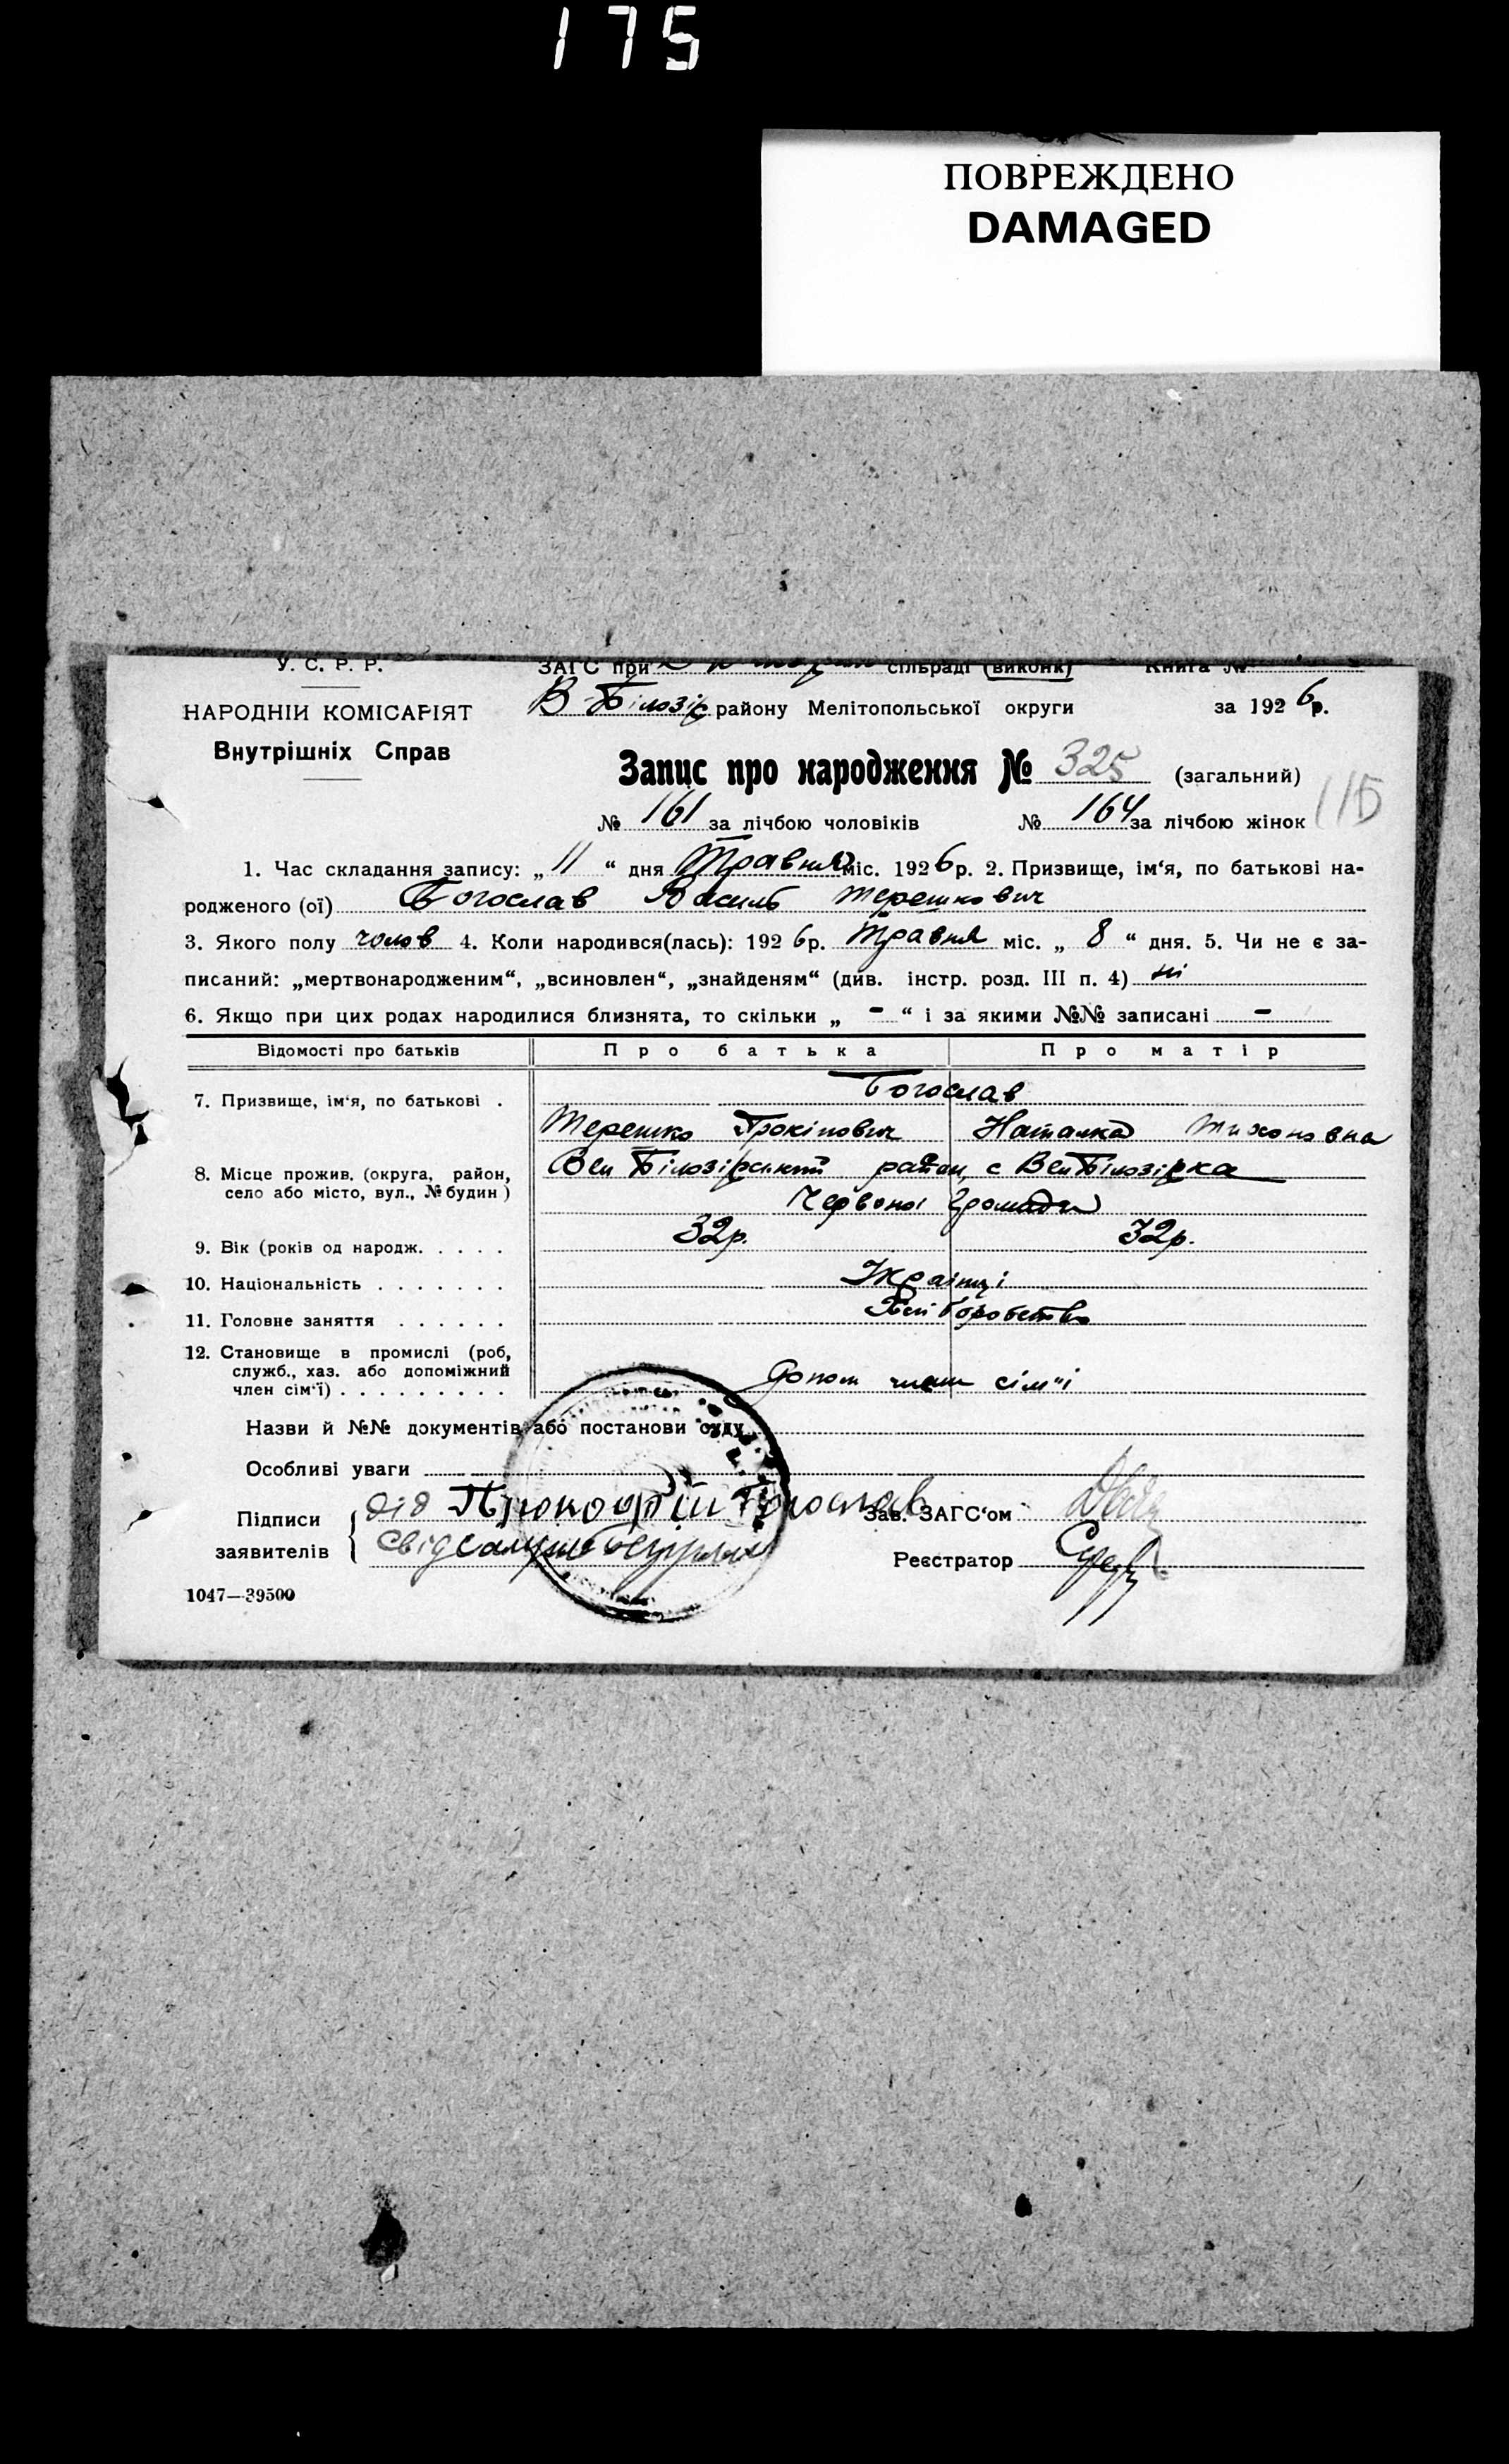 175
ПОВРЕЖДЕНО
DAMAGED
У. С. Р. Р.
ЗАГС при сільраді (виконк) Книга №
НАРОДНІЙ КОМІСАРІЯТ
В-Білозір району Мелітопольської округи за 1926р.
Внутрішніх Справ
Запис про народження № 325 (загальний)
115
№ 161 за лічбою чоловіків № 164 за лічбою жінок
1. Час складання запису: „11“ дня Травня міс. 1926р. 2. Призвище, ім‘я, по батькові на-
родженого (ої) Богослав Василь Терешкович
3. Якого полу чолов 4. Коли народився(лась): 1926р. Травня міс. „8“ дня. 5. Чи не є за-
писаний: „мертвонародженим“, „всиновлен“, „знайденям“ (див. інстр. розд. III п. 4) ні
6. Якщо при цих родах народилися близнята, то скільки „ - “ і за якими №№ записані -
Відомості про батьків Про батька Про матір
7. Призвище, ім‘я, по батькові . Богослав
Терешко Прокіпович Наталка Тихоновна
8. Місце прожив. (округа, район, село або місто, вул., № будин ) Вел Білозірський район, с Вел Білозірка
Червоної Громади
9. Вік (років од народж. . . . . 32р. 32р.
10. Національність . . . . . . . Українці
11. Головне заняття . . . . . . Хліборобство
12. Становище в промислі (роб,
служб., хаз. або допоміжний
член сім‘ї) . . . . . . . . . Допом член сім"ї
Назви й №№ документів або постанови суду
Особливі уваги
Підписи заявителів дід Прокофій Богослав
свід
Зав. ЗАГС‘ом
Реєстратор
1047—39500